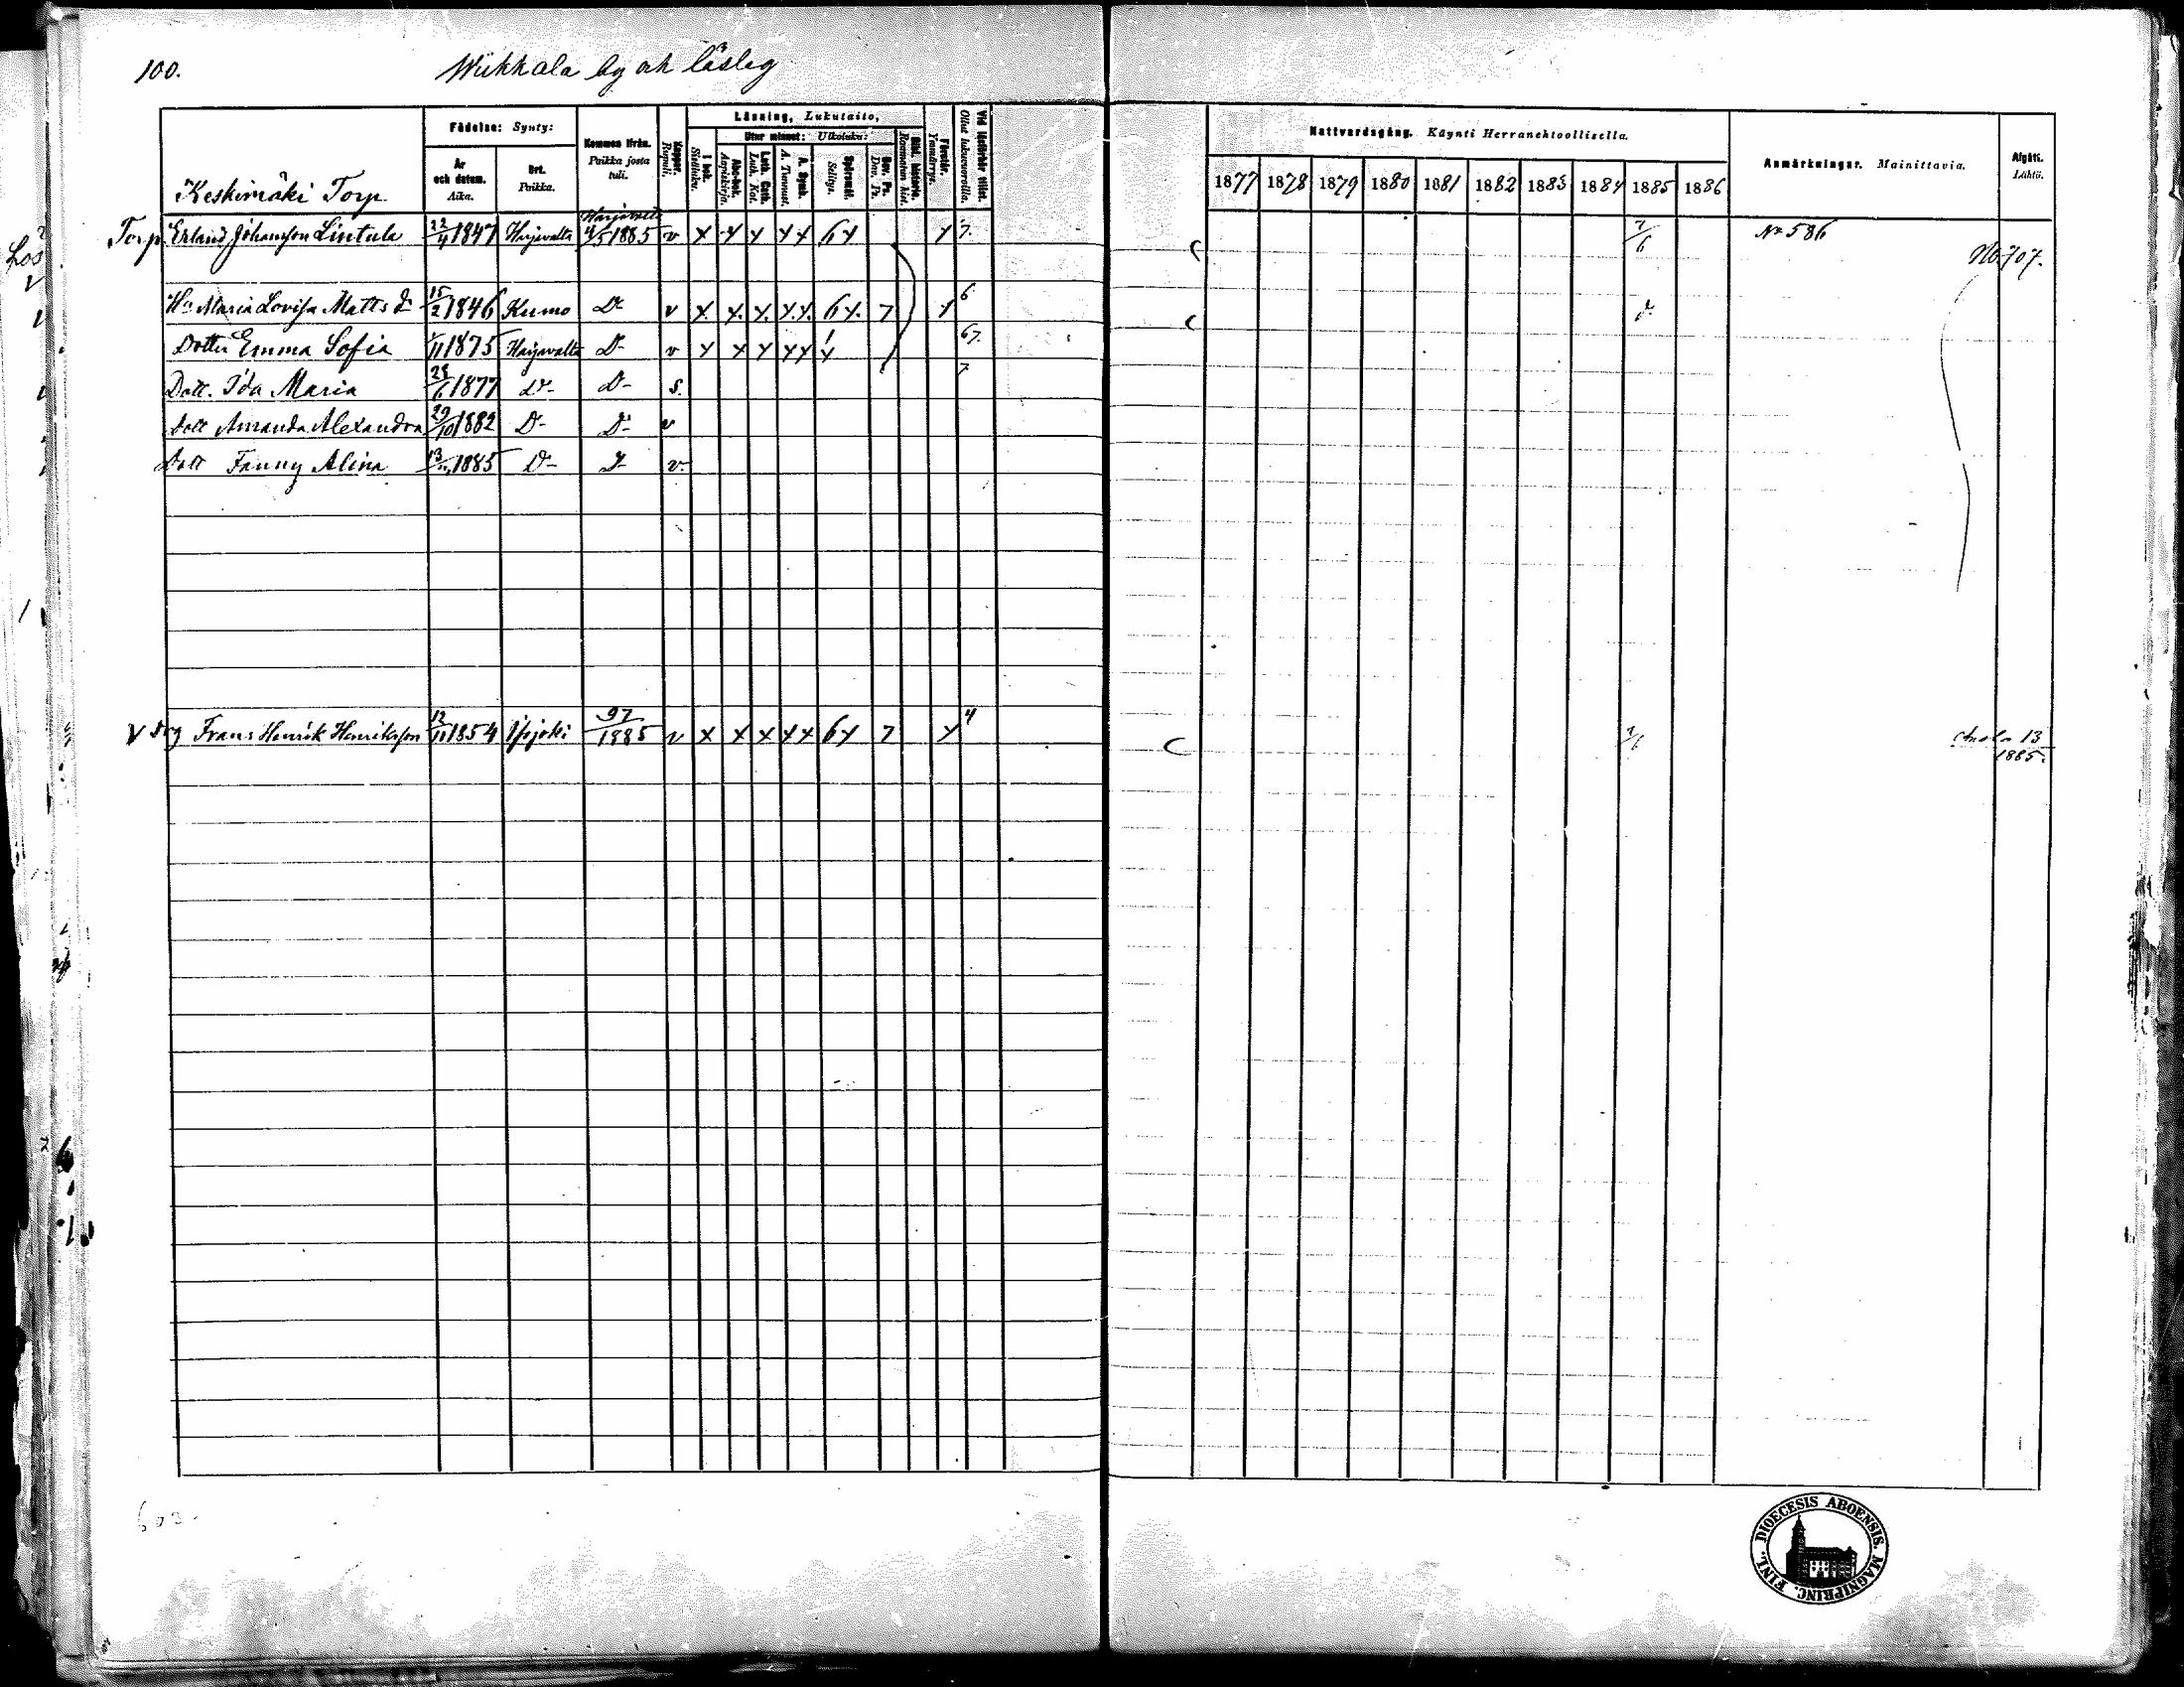 100.
Wiikkala by och låslag
Keskimäki Torp
Födelse: Synty:
År och datum. Aika.
Ort. Paikka.
Kommen ifrån. Paikka josta tuli.
Koppor. Rupuli.
Läsning, Lukutaito,
I bok. Sisäluku.
Utur minnet: Ulkoluku:
Abc-bok. Aapiskirja.
Luth. Cath. Luth. Kat.
A. Symb. A. Tunnust.
Spörsmål. Selitys.
Dav. Ps. Dav. Ps.
Bibl. historia. Raamatun hist.
Förstår. Ymmärrys.
Vid läsförhör tillst. Ollut lukuvuoroilla.
Nattvardsgång. Käynti Herranehtoollisella.
1877 1878 1879 1880 1881 1882 1883 1884 1885 1886
Anmärkningar. Mainittavia.
Afgått. Lähtö.
Torp. Erland Johansson Lintula 22/4 1847 Harjavalta Harjavalta 4/5 1885 v x x x x x 6x x 7. 7/6 No 586
No 707.
Hu Maria Lovisa Matts dr 15/2 1846 Kumo Do v x x. x. x.x. 6x. 7 x 6
Dotter Emma Sofia 1/11 1875 Harjavalta D- v x x x x x x 67.
Dott. Ida Maria 28/6 1877 D- D- s. 7
Dott Amanda Alexandra 29/10 1882 D- D- v
Dott Fanny Alina 13/11 1885 D- D- v.
v Drg Frans Henrik Henriksson 12/11 1854 97/1885 v x x x x x 6x 7 x 4 7/6 13
1885.
DIOECESIS ABOENSIS. MAGNIPRINC. FINL.